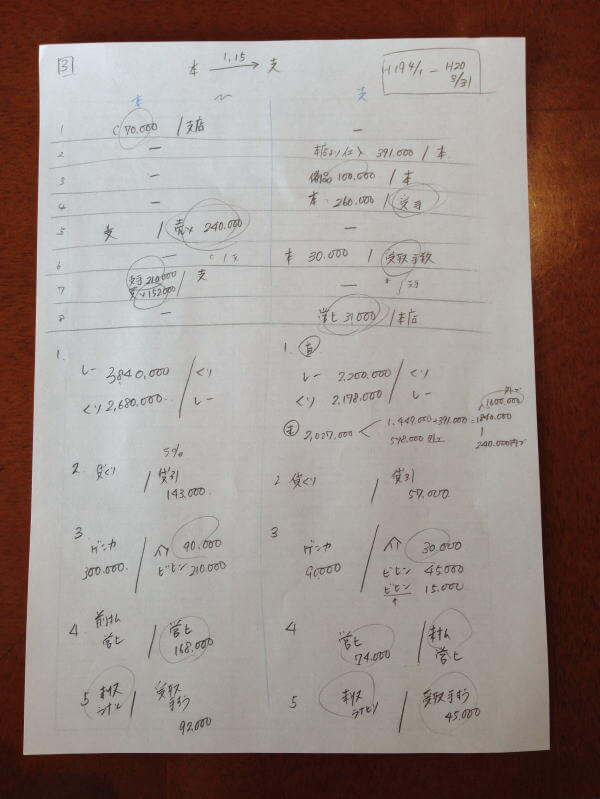 3
本 1.15 → 支
H19 4/1 - H20 3/31
本 〜 支
1 C 70.000 / 支店 ー
2 ー 本店より仕入 391.000 / 本
3 ー 備品 100.000 / 本
4 ー 本 260.000 / 受手
5 支 / 売× 240.000 ー
6 ー 本 30.000 / 受取手数
7 受手 210.000 / 支 ー
売×152000
8 ー 営ヒ 31,000 / 本店
1.
しー 3,840,000 / くり
くり 2,680.000 / しー
1. 直
しー 2,200.000 / くり
くり 2,178.000 / しー
2,027,000 < 1,449.000+391.000=1840.000
1600.000
578,000 外り
240.000
5%
2. 貸くり / 貸引 143.000
2 貸くり / 貸引 57.000
3 ゲンカ 300.000 / 90.000
ビヒン 210.000
3 ゲンカ 90,000 / 30.000
ビヒン 45.000
ビヒン 15.000
4 前けん 営ヒ / 営ヒ 168.000
4 営ヒ 74.000 / 営ヒ
5 / 受取手数 92.000
5 / 受取手数 45.000